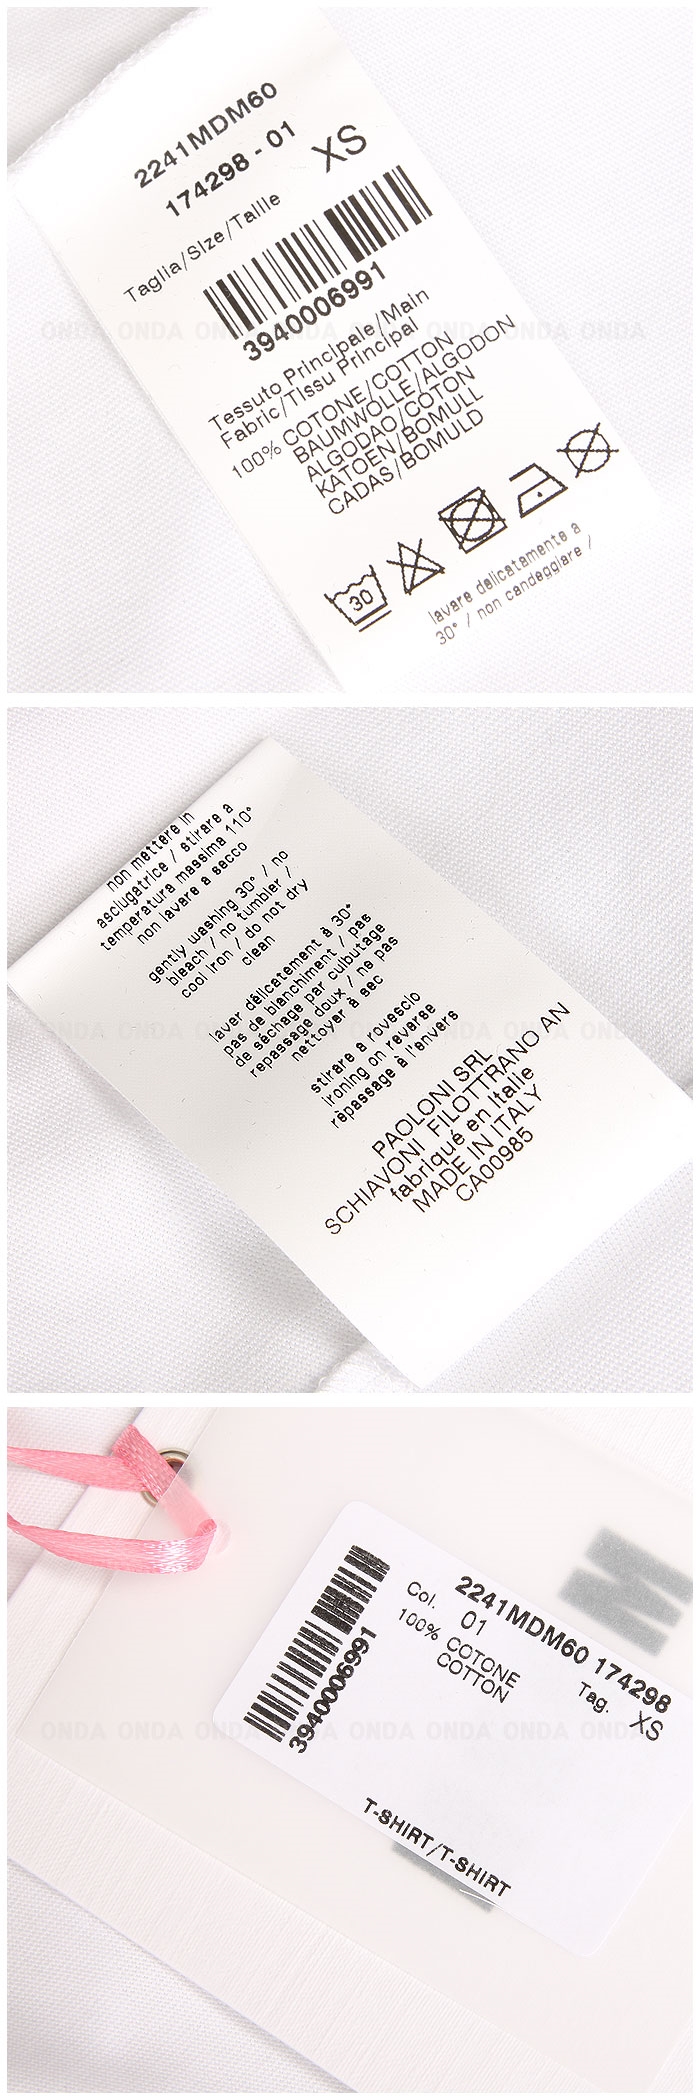 2241MDM60
174298 - 01
Taglia/Size/Taille XS
3940006991
Tessuto Principale/Main
Fabric/Tissu Principal
100% COTONE/COTTON
BAUMWOLLE/ALGODON
ALGODAO/COTON
KATOEN/BOMULL
CADAS/BOMULD
30
lavare delicatamente a
30° / non candeggiare /
ONDA ONDA ONDA ONDA ONDA ONDA ONDA ONDA
non mettere in
asciugatrice / stirare a
temperatura massima 110°
non lavare a secco
gently washing 30° / no
bleach / no tumbler /
cool iron / do not dry
clean
laver délicatement à 30°
pas de blanchiment / pas
de séchage par culbutage
repassage doux / ne pas
nettoyer à sec
stirare a rovescio
ironing on reverse
rèpassage à l'envers
PAOLONI SRL
SCHIAVONI FILOTTRANO AN
fabriqué en Italie
MADE IN ITALY
CA00985
ONDA ONDA ONDA ONDA ONDA ONDA ONDA ONDA
M
2241MDM60 174298
Col. 01
Tag. XS
100% COTONE
COTTON
3940006991
T-SHIRT/T-SHIRT
ONDA ONDA ONDA ONDA ONDA ONDA ONDA ONDA